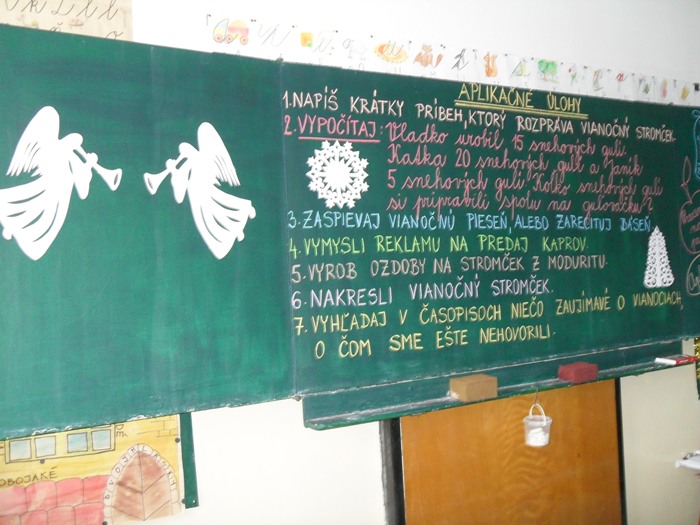 APLIKAČNÉ ÚLOHY
1. NAPÍŠ KRÁTKY PRÍBEH, KTORÝ ROZPRÁVA VIANOČNÝ STROMČEK.
2. VYPOČÍTAJ: Vladko urobil, 15 snehových gulí.
Katka 20 snehových gulí a Janík
5 snehových gulí. Koľko snehových gulí
si pripravili spolu na guľovačku?
3. ZASPIEVAJ VIANOČNÚ PIESEŇ, ALEBO ZARECITUJ BÁSEŇ.
4. VYMYSLI REKLAMU NA PREDAJ KAPROV.
5. VYROB OZDOBY NA STROMČEK Z MODURITU.
6. NAKRESLI VIANOČNÝ STROMČEK.
7. VYHĽADAJ V ČASOPISOCH NIEČO ZAUJÍMAVÉ O VIANOCIACH,
O ČOM SME EŠTE NEHOVORILI.
OBOJAKÉ